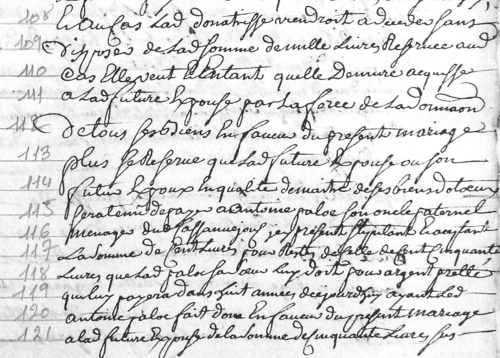 108 Et au cas Lad donatrisse viendroit a deceder sans
109 disposer de Lad somme de mille Livres Reservee aud
110 Cas Elle veut & Entant quelle Demure acquisse
111 a Lad future Expouse par La force de La donnaon
112 De tous ses Biens En faveur du present mariage
113 plus se Reserve que Lad future Expouse ou son
114 futur Expoux En qualité de maitre de ses biens dotaux
115 sera tenu de payer a antoine paloc son oncle paternel
116 menager du icy present stipulant & aceptant
117 La somme de Cent Livres pour Reste de Celle de Cent Cinquante
118 Livres que Lad paloc sa sœur Luy Doit pour argent prette
119 qui Luy payera dans huit années de ce jourdhuy ayant Led
120 antoine paloc fait done En faveur du present mariage
121 a lad future Expouse de La somme de Cinquante Livres ses